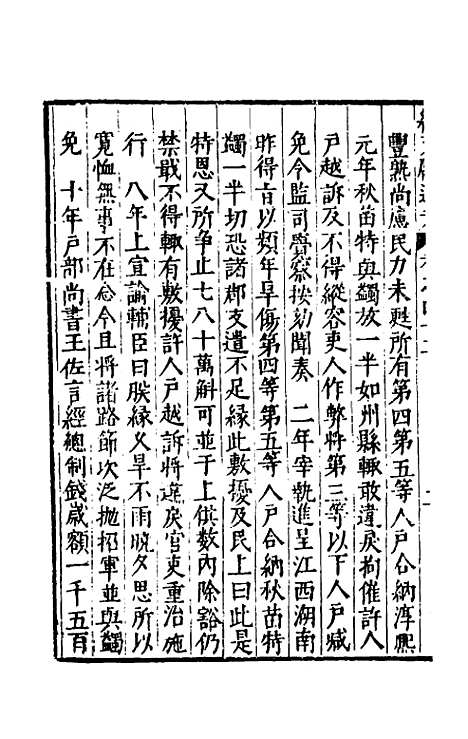 豐熟尚慮民力未甦所有第四第五等人戶合納淳熙
元年秋苗特與蠲放一半如州縣輙敢違戾拘催許人
戶越訴及不得縱容吏人作弊將第三等以下人戶臧
免令監司覺察按劾聞奏　二年宰執進呈江西湖南
昨得旨以頻年旱傷第四等第五等人戶合納秋苗特
蠲一半切恐諸郡支遣不足緣此敷擾及民上曰此是
特恩又所爭止七八十萬斛可並于上供數內除豁仍
禁戢不得輙有敷擾許人戶越訴將違戾官吏重治施
行　八年上宣諭輔臣曰朕緣久旱不雨曉夕思所以
寬恤無事不在念今且將諸路節次泛拋招軍並與蠲
免　十年戶部尚書王佐言經總制錢歲額一千五百